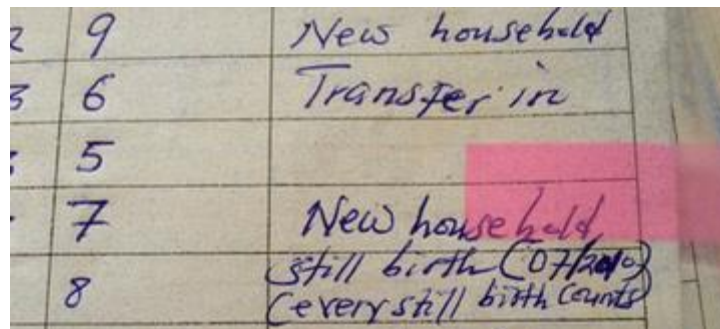 2 9 New household
3 6 Transfer in
5
7 New household,
still birth (07/2010)
8 (every still birth counts)